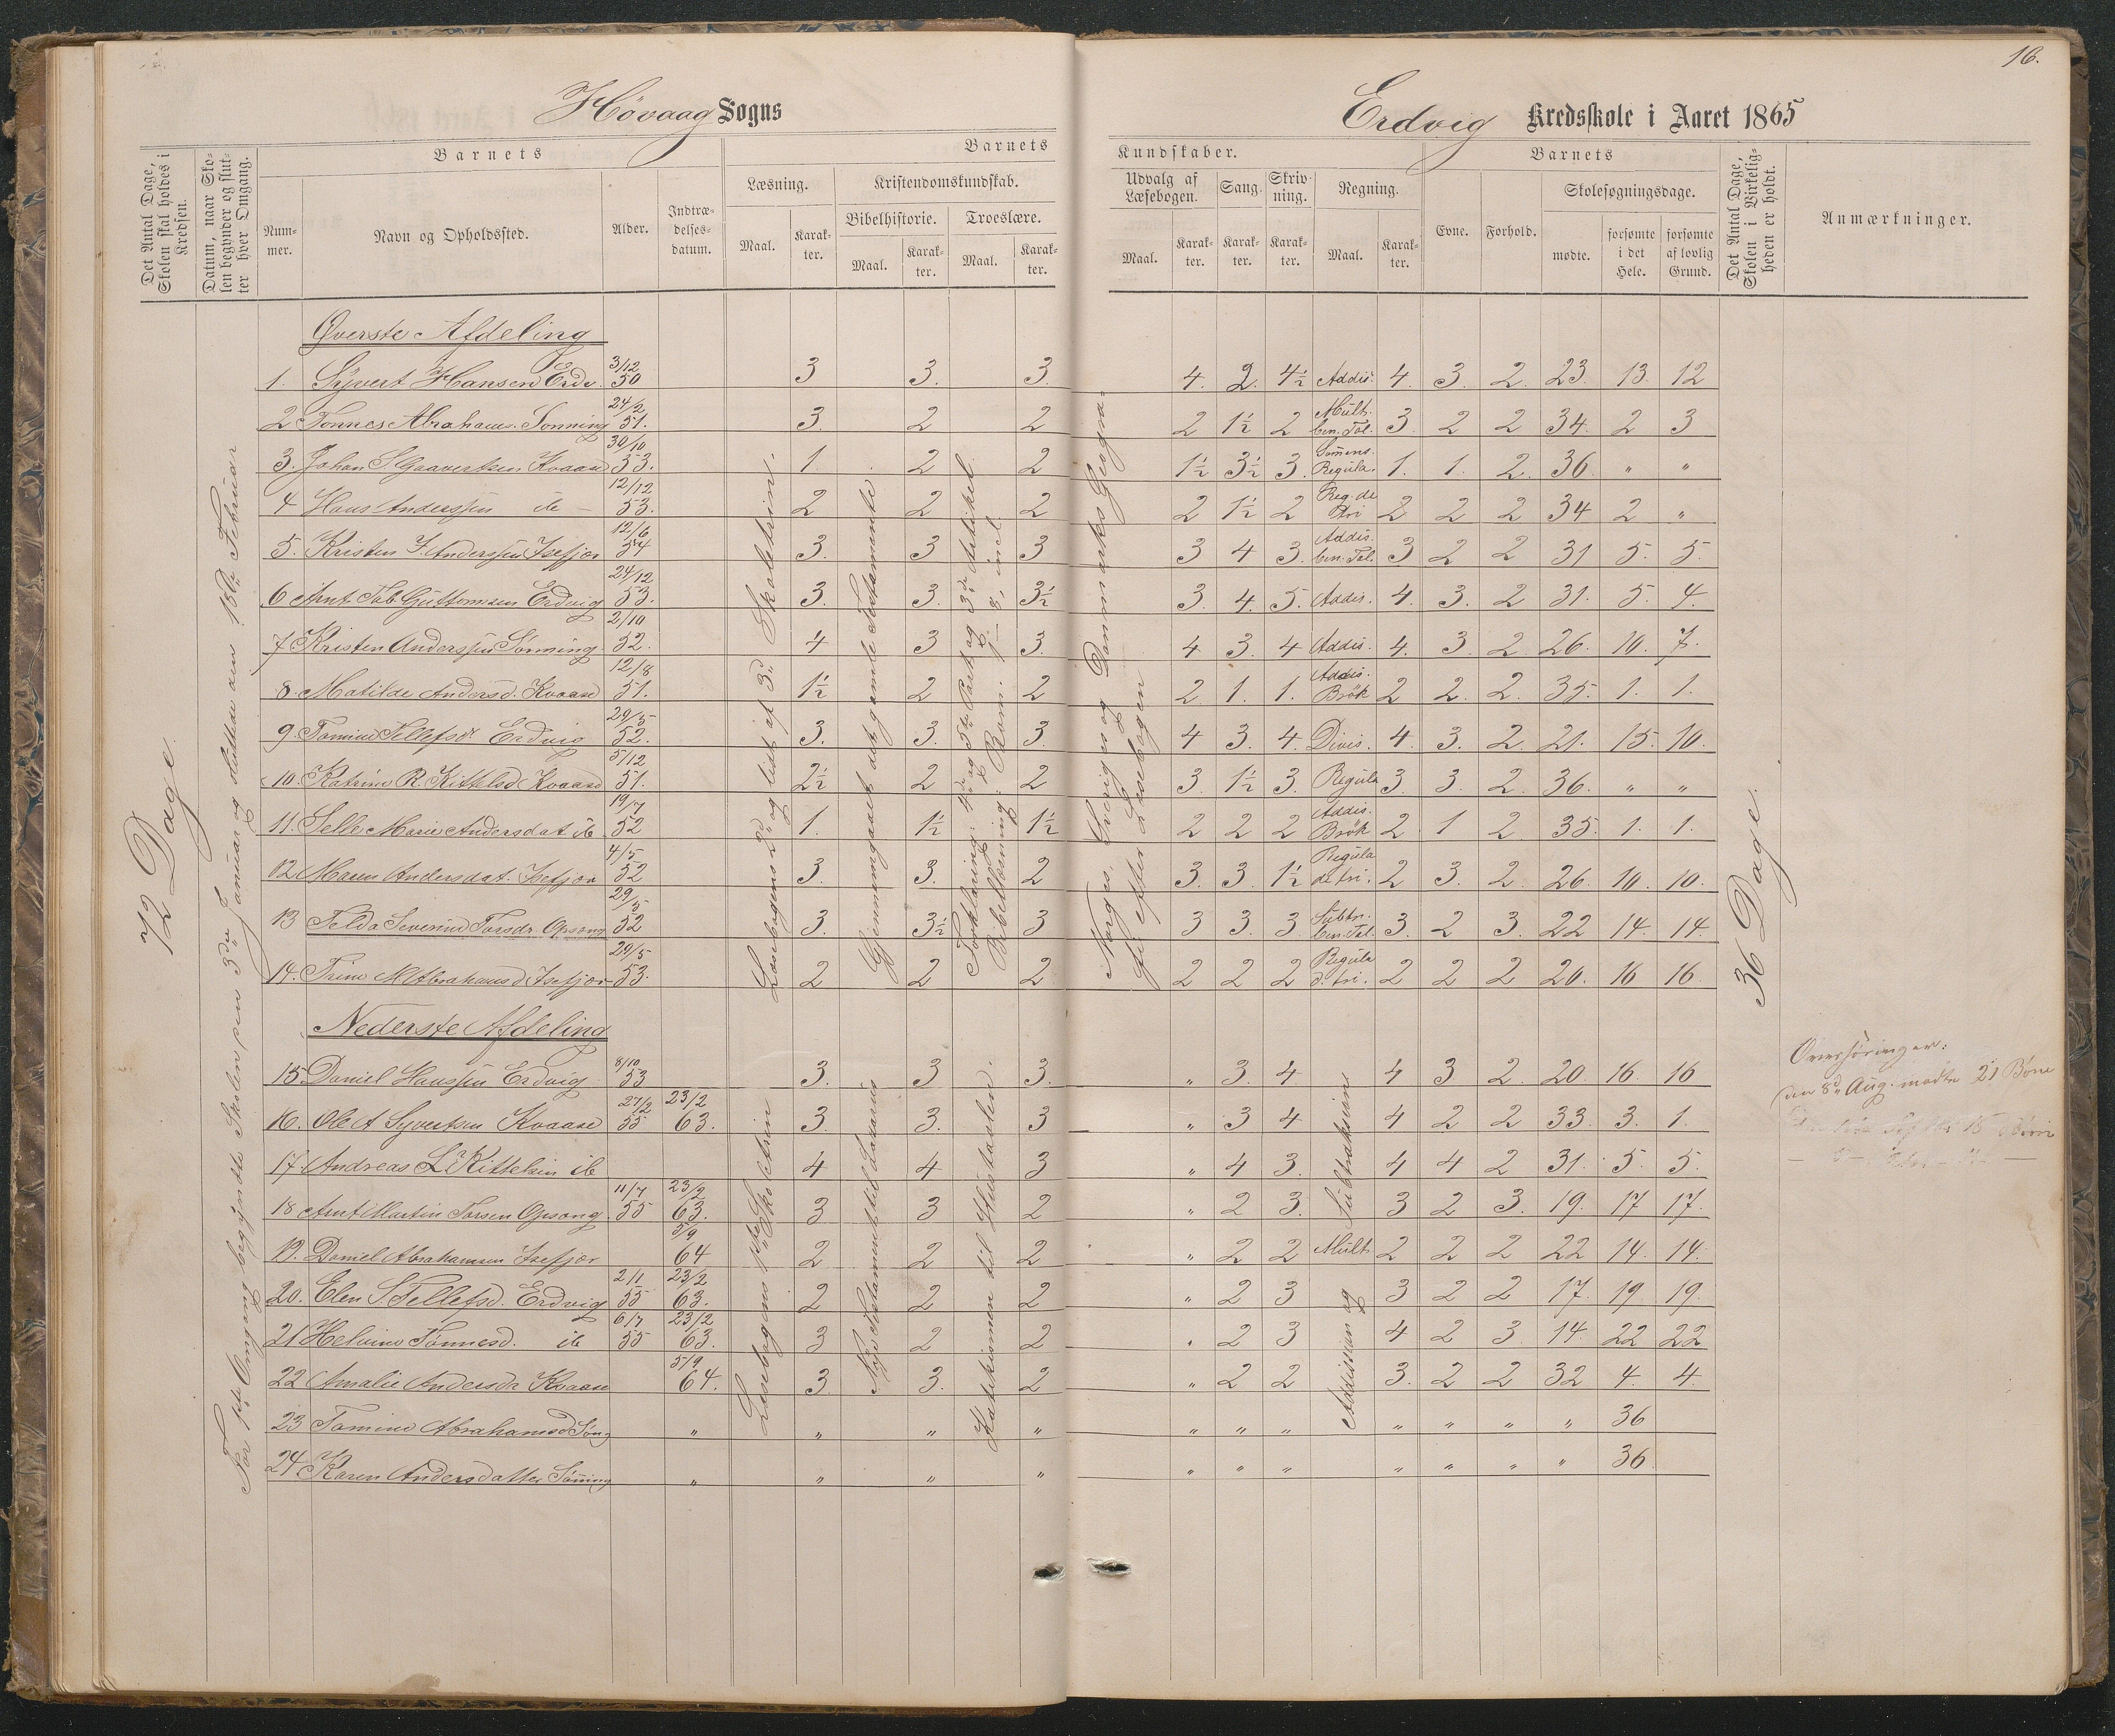 16.
Høvaag Sogns
Erdvig Kredsskole i Aaret 1865
Det Antal Dage, Skolen skal holdes i Kredsen.
Datum, naar Skolen begynder og slutter hver Omgang.
Barnets
Barnets
Kundskaber.
Barnets
Det Antal Dage, Skolen i Virkeligheden er holdt.
Anmærkninger.
Nummer.
Navn og Opholdssted.
Alder.
Indtrædelsesdatum.
Læsning.
Kristendomskundskab.
Udvalg af Læsebogen.
Sang.
Skrivning.
Regning.
Evne.
Forhold.
Skolesøgningsdage.
Bibelhistorie.
Troeslære.
Maal.
Karakter.
Maal.
Karakter.
Maal.
Karakter.
Maal.
Karakter.
Karakter.
Karakter.
Maal.
Karakter.
mødte.
forsømte i det Hele.
forsømte af lovlig Grund.
72 Dage.
For 1ste Omgang begyndte Skolen den 3die Januar og sluttede den 18de Februar
Læsebogens 2d og lidt af 3d Skoletrin.
Gjennemgaaet det gamle Testamente
Forklaring: 4de og 5te Part og 3die Artikel.
Norges, Sverigs og Danmarks Geogra-
fi efter Læsebogen
36 Dage.
Øverste Afdeling
1. Syvert Hansen Erdv. 3/12 50 3 3. 3. 4. 2. 4½ Addis. 4. 3. 2. 23. 13. 12
2 Tønnes Abrahams. Sønning 24/2 51. 3. 2 2 2 1½ 2 Mult. ben. Tal. 3. 2 2 34. 2 3
3. Johan S. Gaavertsen Kvaase 30/10 53. 1. 2 2 1½ 3½ 3. Regula. 1. 1. 2. 36. " "
4 Hans Anderssen ib - 12/12 53. 2 2 2 2 1½ 2 Reg. de tri 2 2 2 34 2 "
5. Kristen J. Anderssen Isefjær 12/6 54 3. 3 3 3 4 3. Addis. ben. Tal. 3 2 2 31 5. 5.
6 Arnt Tob. Guttormsen Erdvig 24/12 53. 3. 3. 3½ 3. 4. 5. Addis. 4. 3. 2 31. 5. 4.
7 Kristen Anderssen Sønning 2/10 52. 4 3 3. 4 3. 4 Addis. 4. 3. 2. 26. 10. 7.
8. Matilde Andersd. Kvaase 12/8 51. 1½ 2 2 2 1. 1. Addis. Brök 2 2. 2. 35. 1. 1.
9. Tomine Tellefsd. Erdvig 29/5 52. 3. 3. 3. 4 3. 4. Divis. 4. 3. 2 21. 15. 10.
10. Katrine R. Kittelsd. Kvaase 5/12 51. 2½ 2 2 3. 1½ 3. Regula 3. 3. 2. 36. " "
11. Selle Marie Andersdat. ib 19/7 52 1. 1½ 1½ 2 2 2 Addis. Brök 2 1 2 35. 1. 1.
12 Maren Andersdat. Isefjær 4/5 52 3. 3. 2 3. 3. 1½ Regula de tri. 2 3. 2. 26. 10. 10.
13 Telda Severine Torsdr. Opsong 29/5 52 3. 3½ 3 3 3. 3 Subtr. ben. Tal. 3. 2 3. 22 14. 14.
14. Trine M. Abrahamsd. Isefjær 29/5 53. 2 2 2 2 2 2 Regula d. tri. 2 2 2 20. 16 16
Nederste Afdeling
Læsebogens 1ste Skoletrin
Katekismen til Hustavlen.
Addisjon og Subtraksion
15 Daniel Hanssen Erdvig 8/10 53 3. 3 3. " 3. 4 4 3 2. 20. 16. 16
16. Ole A Syvertsen Kvaase 27/2 55 23/2 63. 3. 3. 3 " 3 4 4 2 2 33. 3. 1.
17. Andreas L. Kittelsen ib 4 4 3 " 4 3. 4 4 2 31. 5. 5.
18 Arnt Martin Torsen Opsong. 11/7 55 23/2 63. 3 3 2 " 2 3. 3 2 3. 19. 17 17.
19. Daniel Abrahamsen Isefjær 5/9 64 2 2 2 " 2 2 Mult. 2 2 2 22 14. 14.
20. Elen S. Tellefsd. Erdvig 2/1 55 23/2 63. 2 2 2 " 2 3 3 2 2 17. 19. 19.
21 Helvine Tønnesd. ib 6/7 55 23/2 63. 3 2 2 " 2 3 4 2 3. 14. 22 22
22 Amalie Andersdr. Kvaase 5/9 64. 3 3. 2 " 2 2 3. 2 2 32 4. 4.
23 Tomine Abrahamsd. Søng " " " " " " " " " " " 36
24 Karen Andersdatter Sønning " " " " " " " " " " " 36.
Overhøringer:
den 8de Aug. mødte 21 Børn